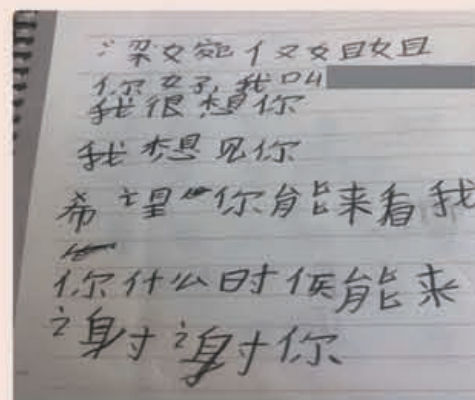 梁文婉仅又姐姐
你好,我叫
我很想你
我想见你
希望你能来看我
你什么时候能来
谢谢你